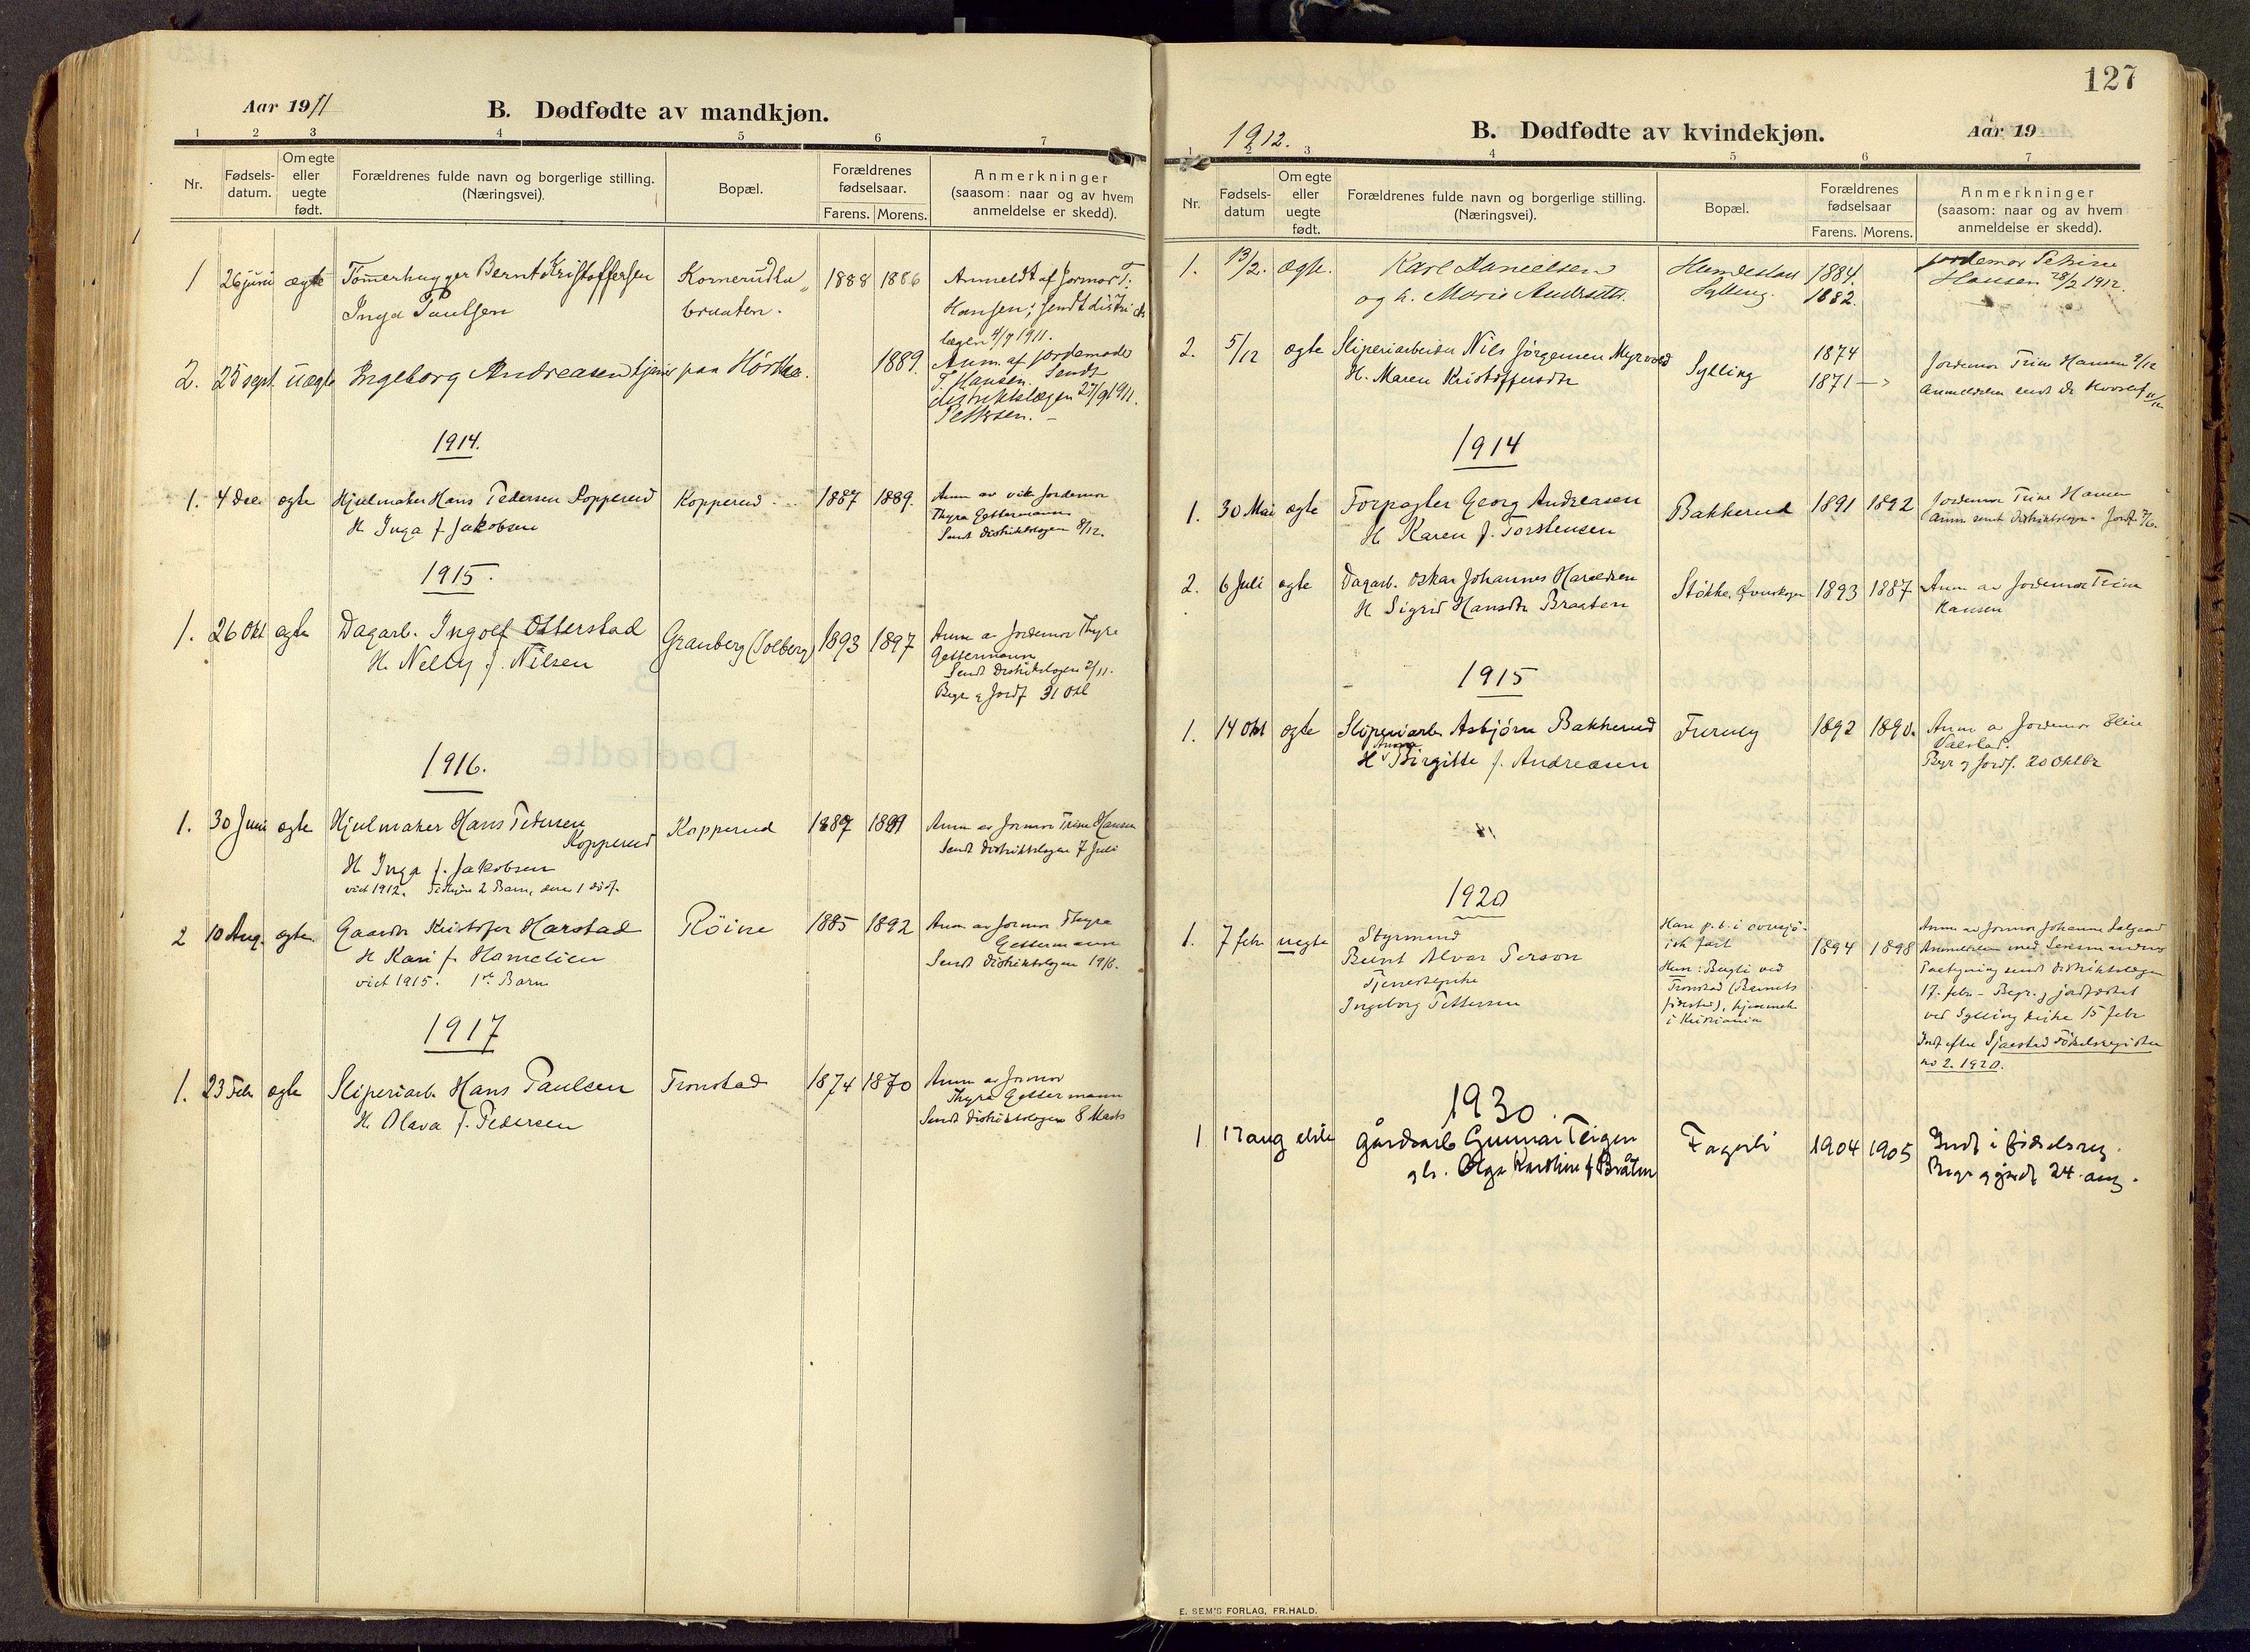 Aar 1911
B. Dødfødte av mandkjøn.
1 2 3 4 5 6 7
Nr.
Fødsels-
datum.
Om egte
eller
uegte
født.
Forældrenes fulde navn og borgerlige stilling.
(Næringsvei).
Bopæl.
Forældrenes
fødselsaar.
Farens. Morens.
Anmerkninger
(saasom: naar og av hvem
anmeldelse er skedd).
1 26 juni ægte Tømerhugger Bernt Kristoffersen
Inga Paulsen
braaten.
1888 1886
Anmeldt af Jormor T.
Hansen; sendt distrikts
lægen 4/7 1911.
2. 25 sept. uægte Ingeborg Andreasen tjener paa Hörtha.
1889.
Anm. af jordemoder
T. Hansen. Sendt
distriktslægen 27/9 1911.
1914.
1. 4 Dec. egte Hjulmaker Hans Pedersen Kopperud
H. Inga f. Jakobsen
Kopperud
1887 1889.
Anm av vik. Jordemor
Thyra Gettermann
Sendt distriktslægen 8/12.
1915.
1. 26 Okt egte Dagarb. Ingolf Otterstad
H. Nelly f. Nilsen
Granberg (Solberg)
1893 1897
Anm av Jordemor Thyra
Gettermann
Sendt distriktslægen 2/11.
Begr og Jordf 31 Okt
1916.
1. 30 Juni egte Hjulmaker Hans Pedersen
Kopperud
H. Inga f. Jakobsen
viet 1912. Tidligere 2 Barn, derav 1 dødf.
Kopperud
1887 1889
Anm av Jormor Trine Hansen
Sendt distriktslægen 7 Juli
2 10 Aug. egte. Gaardbr Kristofer Harstad
H Kari f. Hamelien
viet 1915. 1ste Barn
Röine
1885 1892
Anm av Jormor Thyra
Gettermann
Sendt distriktslægen 19/8.
1917
1. 23 Feb egte Sliperiarb. Hans Paulsen
H. Olava f. Pedersen
Tronstad
1874 1870
Anm av Jormor
Thyra Gettermann
Sendt distriktslægen 8 Marts
127
1912.
B. Dødfødte av kvindekjøn.
Aar 19
1 2 3 4 5 6 7
Nr.
Fødsels-
datum
Om egte
eller
uegte
født.
Forældrenes fulde navn og borgerlige stilling.
(Næringsvei).
Bopæl.
Forældrenes
fødselsaar
Farens. Morens.
Anmerkninger
(saasom: naar og av hvem
anmeldelse er skedd).
1. 13/2. ægte. Karl Danielsen
og h. Marie Andrsdtr.
Sylling.
1884.
1882.
Jordemor Petrine
Hansen 28/2 1912.
2. 5/12 egte Sliperiarbeider Nils Jörgensen Myrvold
H. Maren Kristoffersdtr
Sylling
1874
1871
Jordemor Trine Hansen 9/12
Anmeldelsen sendt Dr 11/12
1914
1. 30 Mai egte Forpagter Georg Andreasen
H. Karen f. Torstensen
Bakkerud
1891 1892
Jordemor Trine Hansen
2. 6 Juli egte Dagarb. Oskar Johannes Haraldsen
H Sigrid Hansdtr Braaten
1893 1887
Anm av Jordemor Trine
Hansen
1915
1. 14 Okt egte Sliperiarb. Asbjörn Bakkerud
Anna
H Birgitte f. Andreasen
Furuly
1892 1890.
Anm av Jordemor Elise
Begr og Jordf. 20 Oktbr
1920
1. 7 febr uegte Styrmand
Bernt Alvar Person
Tjenestepike
Ingeborg Pettersen
Han p. t. i oversjö-
isk fart
Hun: Bugli ved
Tronstad (Barnets
fødested), hjemmeh.
i Kristiania
1894 1898
Anm av Jormor Johanne
Anmeldelsen med Lensmandens
Paategning sendt distriktslægen
17. febr - Begr. og jordfæstet
ved Sylling kirke 15 febr
Indf efter Sjaastad Fødselsregister
no 2. 1920.
1930.
1 17 aug ekte Gårdsarb Gunnar Teigen
og h. Olga Karoline f Bråten
Fagerli
1904 1905
Indf i fødselsreg.
Begr og jordf 24. aug.
E. SEM'S FORLAG, FR.HALD.